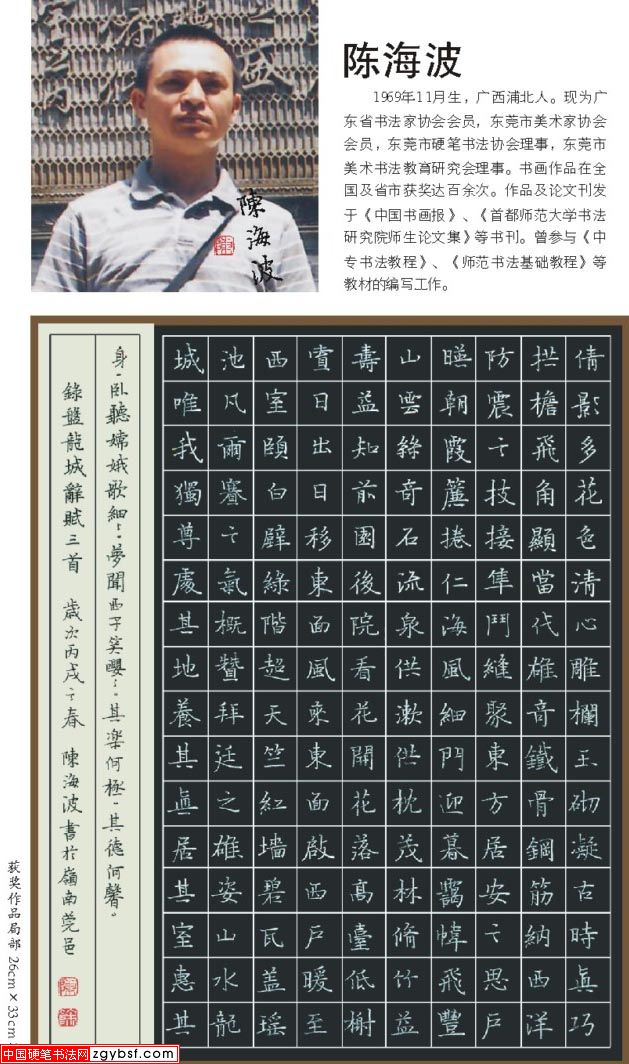 陈海波
1969年11月生，广西浦北人。现为广
东省书法家协会会员，东莞市美术家协会
会员，东莞市硬笔书法协会理事，东莞市
美术书法教育研究会理事。书画作品在全
国及省市获奖达百余次。作品及论文刊发
于《中国书画报》、《首都师范大学书法
研究院师生论文集》等书刊。曾参与《中
专书法教程》、《师范书法基础教程》等
教材的编写工作。
陳海波
倩影多花色清心雕欄玉砌凝古時真巧
拱檐飛角顯當代雄奇鐵骨鋼筋納西洋
防震之技接隼鬥縫聚東方居安之思戶
朝霞簾捲仁海風細門迎暮靄幃飛豐
山雲絲奇石流泉供漱供枕茂林脩竹益
壽益知前園後院看花開花落高臺低榭
日出日移東面風來東面啟西戶暖至
西室頤白壁綠階超天竺紅墻碧瓦蓋瑤
池凡爾賽之氣概贊拜廷之雄姿山水龍
城唯我獨尊處其地養其真居其室惠其
身。臥聽嫦娥歌細：。夢聞西子笑嚶：。其樂何極。其德何馨。
錄盤龍城辭賦三首 歲次丙戌之春 陳海波書於嶺南莞邑
获奖作品局部 26cm×33cm
中国硬笔书法网 zgybsf.com